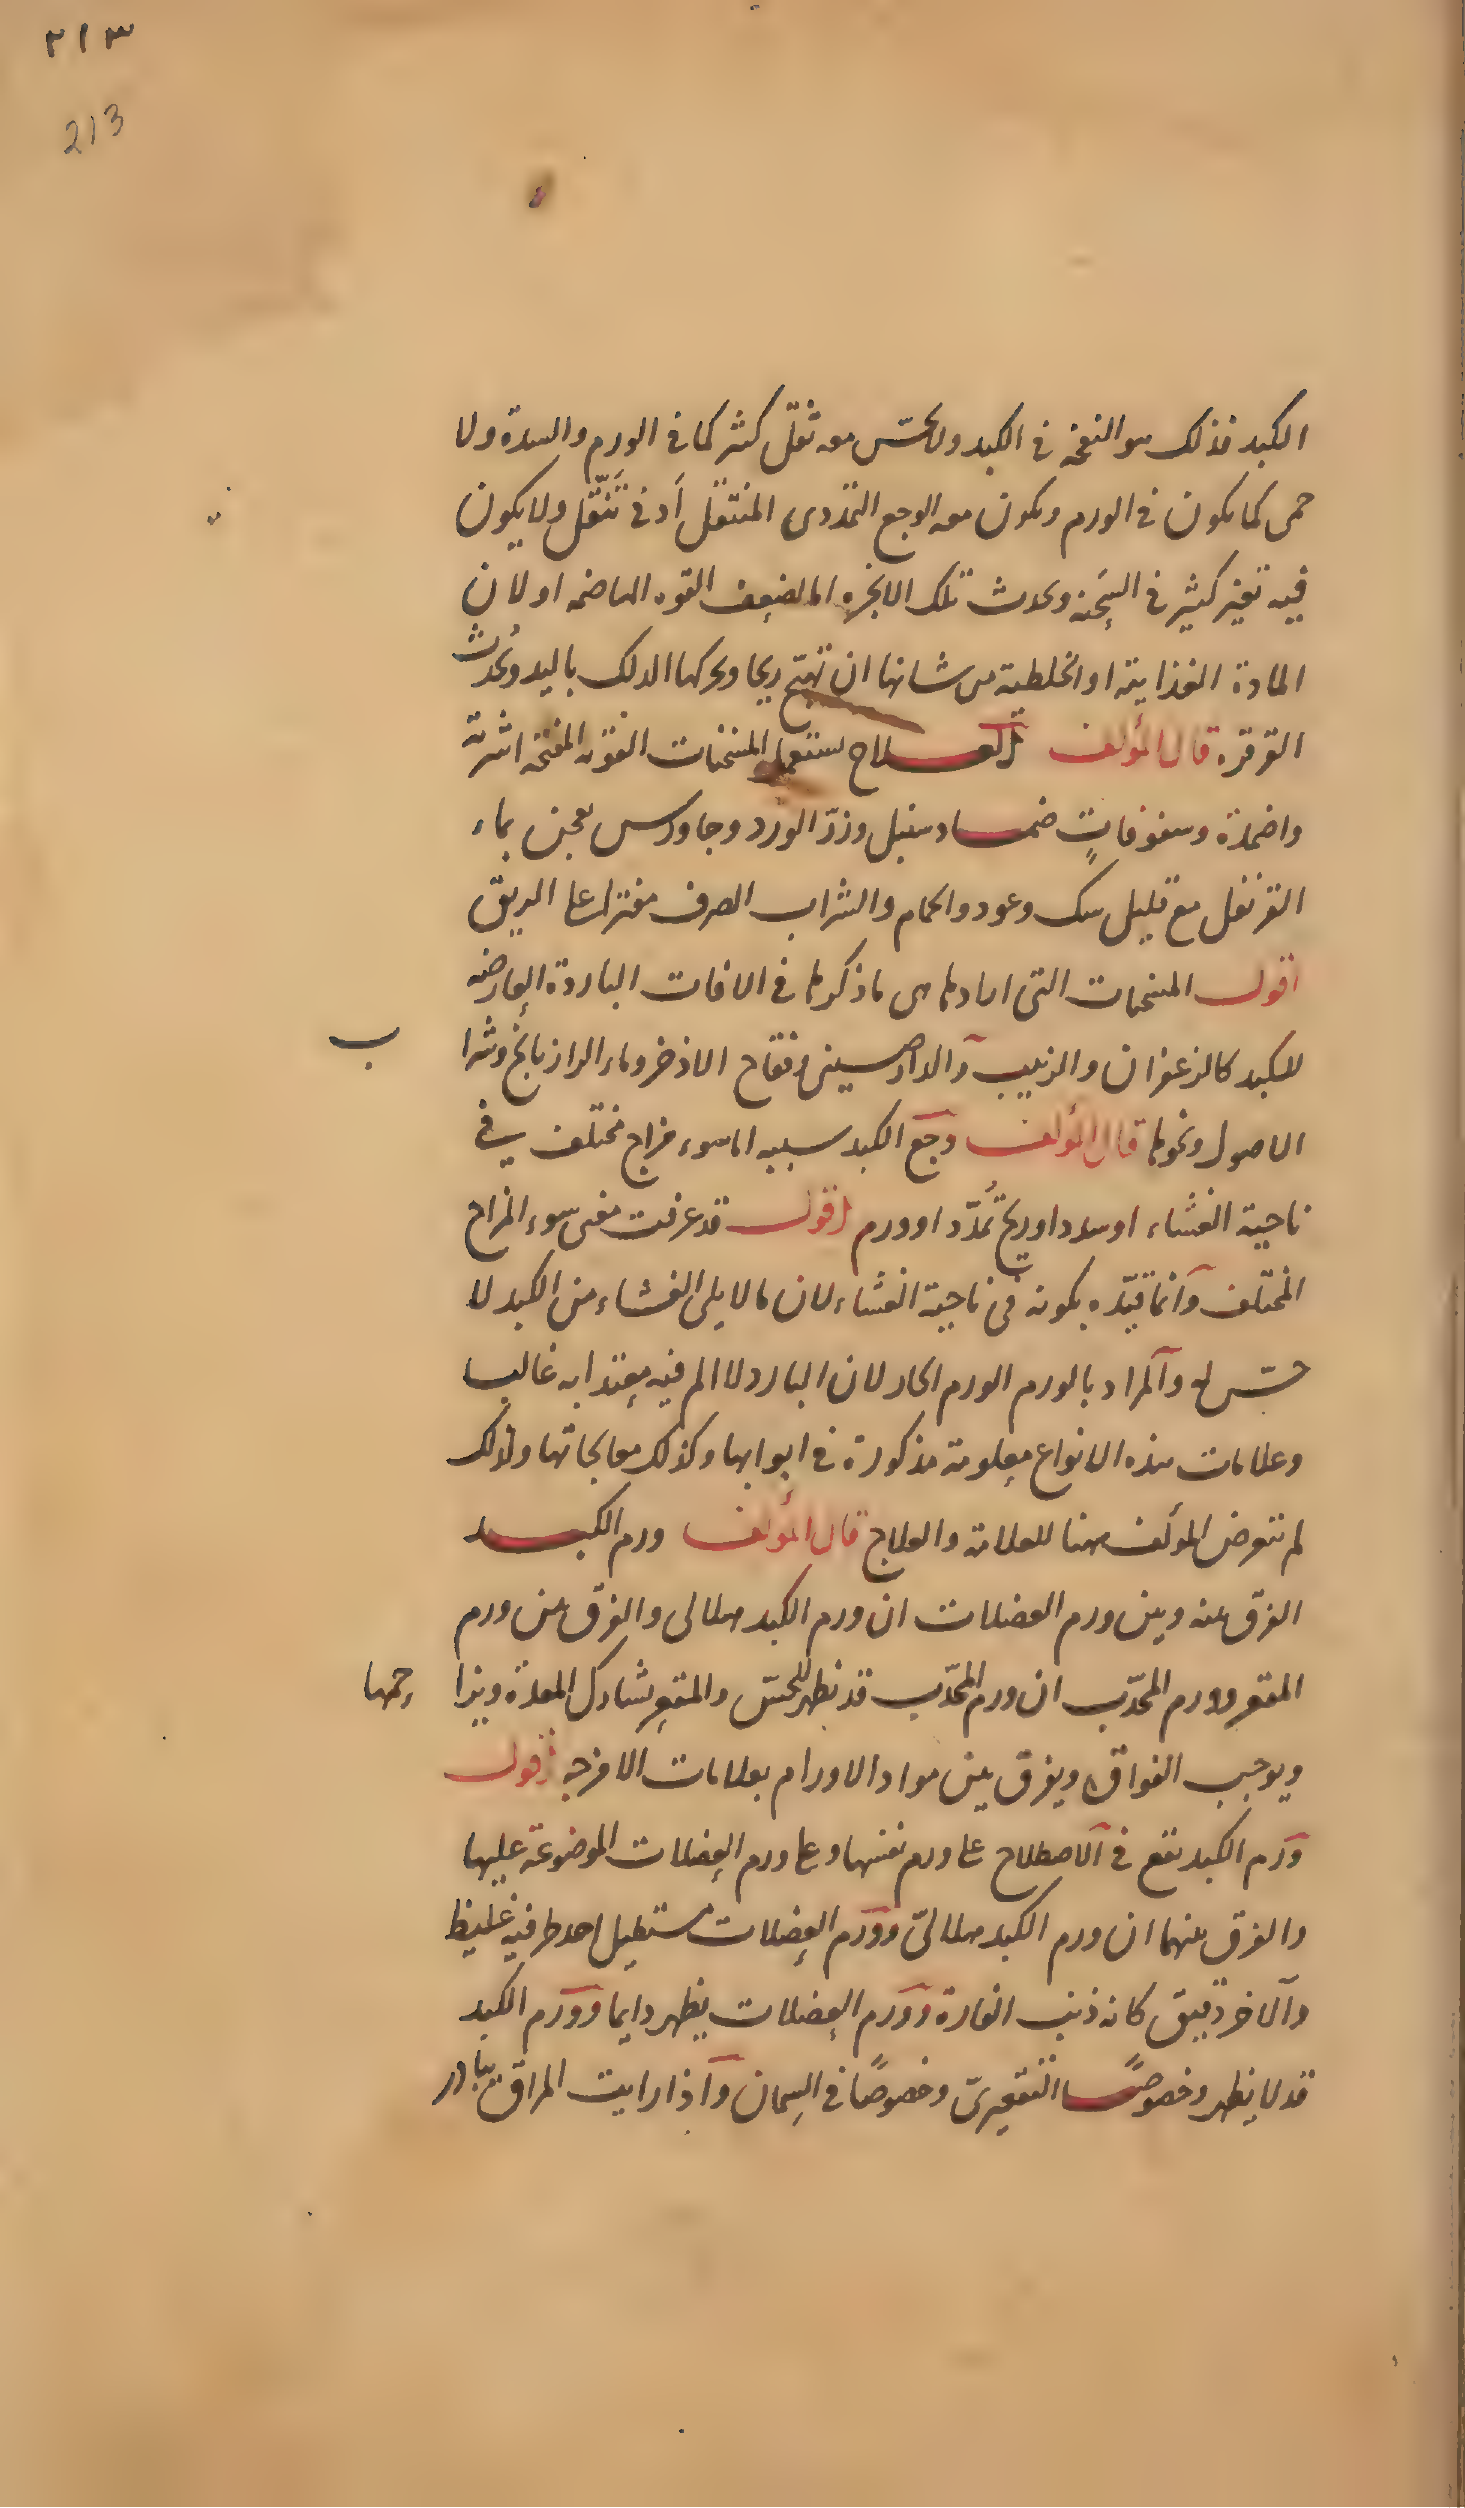 ٢١٣
213
الكبد فذلك هو النفخة في الكبد ولا يحسّ معه ثقل كثير كما في الورم والسدة ولا
حمى كما يكون في الورم ويكون معه الوجع التمددي المنتقل أدنى تنقّل ولا يكون
فيه تغير كثير في السحنة ويحدث تلك الابخرة اما لضعف القوة الهاضمة او لان
المادة الغذائية او الخلطية من شانها ان تهيج ريحا ويحركها الدلك باليد ويحدث
القرقرة قال المؤلف العلاج يستعمل المسخنات القوية المفتحة اشربة
واضمدة وسفوفات ضماد سنبل وزر الورد وجاورس يعجن بماء
القرنفل مع قليل سك وعود والحمام والشراب الصرف مفترا على الريق
اقول المسخنات التي ارادها هي ما ذكرها في الافات الباردة العارضة
للكبد كالزعفران والزبيب والدارصيني وفقاح الاذخر وماء الرازيانج وشرا ب
الاصول ونحوها قال المؤلف وجع الكبد سببه اما سوء مزاج مختلف في
ناحية الغشاء او سدد او ريح تمدّد او ورم اقول قد عرفت معنى سوء المزاج
المختلف وانما قيّده بكونه في ناحية الغشاء لان ما لا يلى الغشاء من الكبد لا
حسّ له والمراد بالورم الورم الحار لان البارد لا الم فيه معتدا به غالبا
وعلامات هذه الانواع معلومة مذكورة في ابوابها وكذلك معالجاتها ولذلك
لم يتعرض المؤلف ههنا للعلامة والعلاج قال المؤلف ورم الكبد
الفرق بينه وبين ورم العضلات ان ورم الكبد هلالى والفرق بين ورم
المقعر وورم المحدّب ان ورم المحدّب قد يظهر للحسّ والمقعر يشارك المعدة ويزا حمها
ويوجب الفواق ويفرق بين مواد الاورام بعلامات الامزجة اقول
ورم الكبد يقع في الاصطلاح على ورم نفسها وعلى ورم العضلات الموضوعة عليها
والفرق بينهما ان ورم الكبد هلاليّ وورم العضلات مستطيل احد طرفيه غليظ
والاخر دقيق كانه ذنب الفارة وورم العضلات يظهر دايما وورم الكبد
قد لا يظهر وخصوصًا التقعيريّ وخصوصًا في السمان واذا رايت المراق يبادر